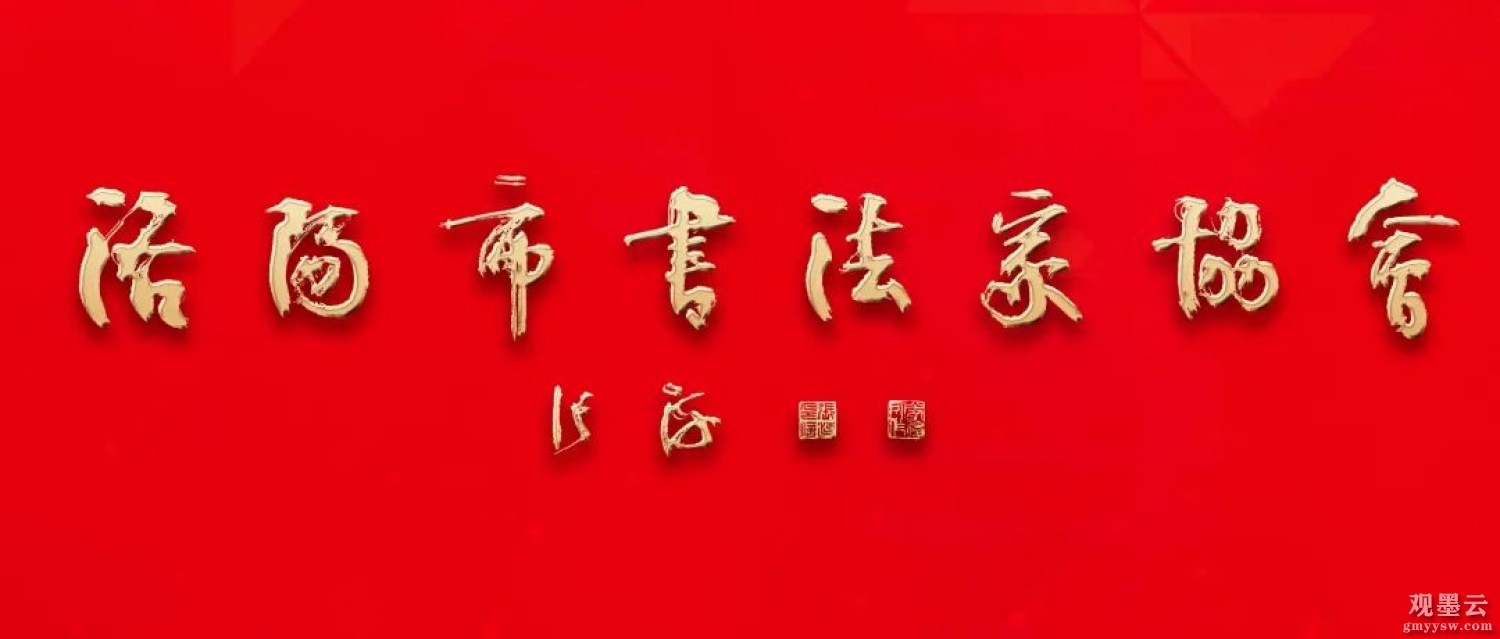 洛陽市書法家協會
张海
观墨云
gmyysw.com